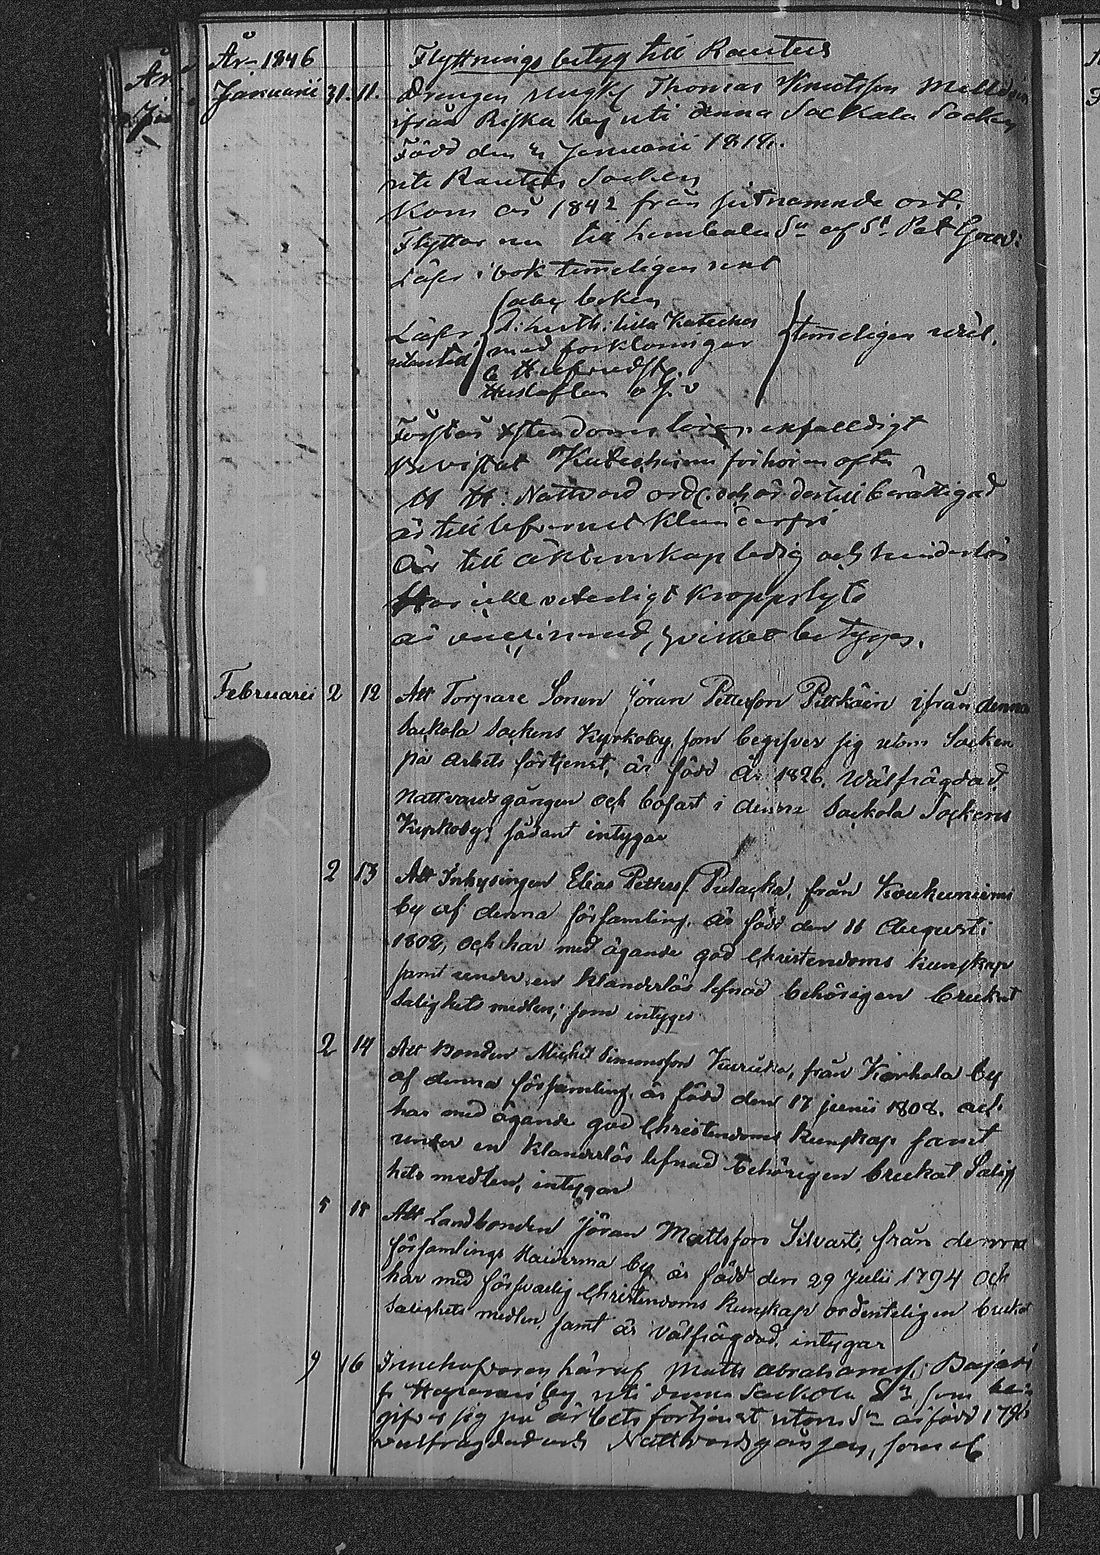 År 1846
Flyttnings betyg till Rautus
Januarii 31. 11. Drengen Thomas Knutsson
ifrån Riska by uti denna Sackola Socken
Född den Januarii 1818.
uti Rautus Socken
Kom år 1842 från sistnämnde ort.
Flyttar nu till Lembala Sn af St Pet Gouv:
Läser i bok temeligen rent
abc boken
Läser D: Luth: lilla Kateches temeligen väl.
utantill med forklaringar
Hustaflan o s. v
Förstår Xstendoms enfalldigt
Bevistat Katechismi förhören ofta
H H. Nattvard och är dertill berättigad
är till lefvernet klanderfri
Är till äktenskap ledig och hinderlös
Har icke veterligt kroppslyte
är vaccinerad, hvilket betyges.
Februarii 2 12 Att Torpare Sonen Jöran Pettersson Pitkäin ifrån denna
Sackola Sockens Kyrkoby, som begifver sig utom Socken
på arbets förtjenst, är född år 1826. Wälfrägdad,
Nattvardsgången och bofast i denna Sackola Sockens
Kyrkoby, sådant intygar
2 13 Att Inhysingen Elias Petterss. från
by af denna församling, är född den 16 Augusti
1802, och har med ägande god Christendoms kunskap
samt under en klanderlös lefnad behörigen brukat
Salighets medlen; som intyges
2 14 Att Bonden Michel Simonsson från Karhola by
af denna församling, är född den 17 junii 1808. och
har med ägande god Christendoms kunskap samt
under en klanderlös lefnad behörigen brukat Salig
hets medlen, intygar
5 15 Att Landbonden Jöran Mattsson från denna
församlings Haiterma by är född den 29 Julii 1794 och
har med försvarlig Christendoms kunskap ordenteligen brukat
Salighets medlen samt är välfrägdad, intygar
9 16 Innehafvaren häraf Matts Abrahamss:
fr by uti denna Sackola Sn som be
gifver sig på arbets fortjenst utom Sn är född
välfrägdad och Nattvardsgången,